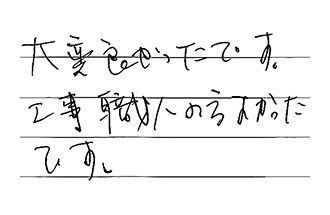 大変良かったです。
工事職人の方よかった
です。